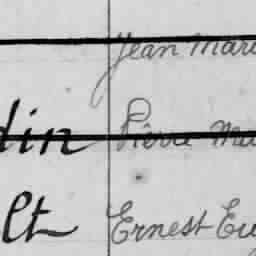 Jean Mari
din Pierre Ma
lt Ernest Eug